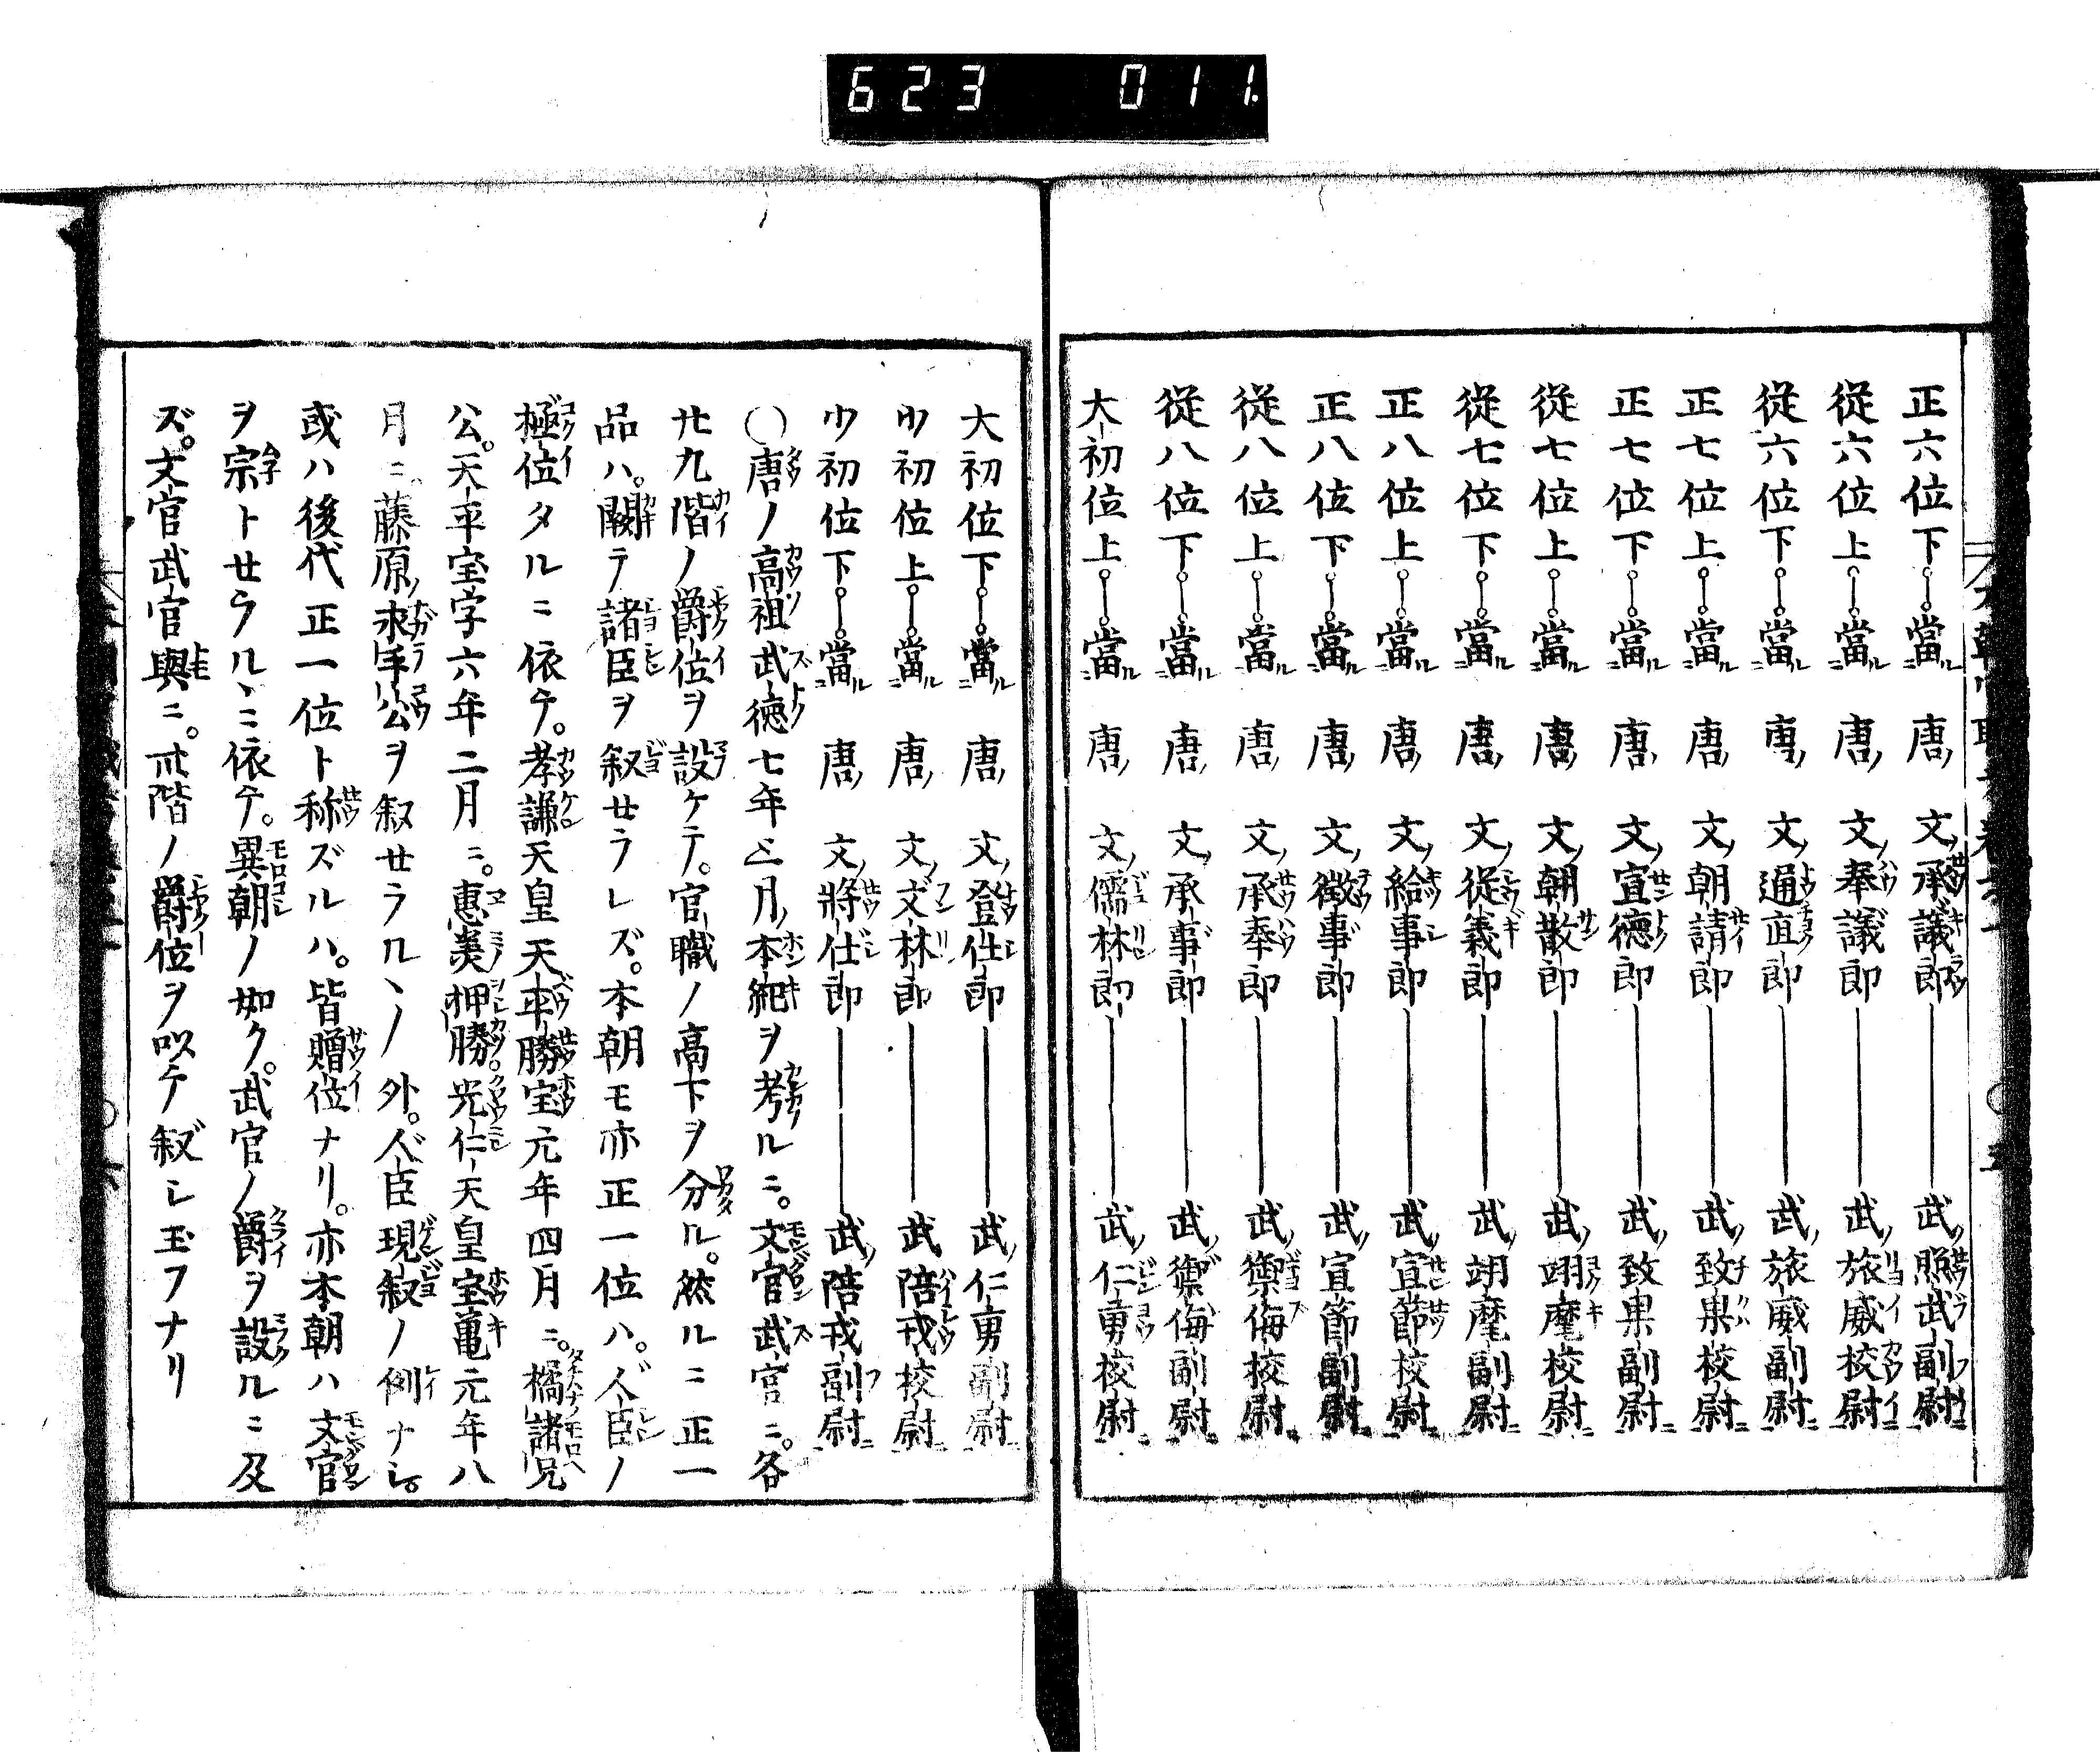 623 011.
正六位下當ル唐ノ文ノ承議郎武ノ照武副尉ニ
從六位上當ル唐ノ文ノ奉議郎武ノ旅威校尉ニ
從六位下當ル唐ノ文ノ通直郎武ノ旅威副尉ニ
正七位上當ル唐ノ文ノ朝請郎武ノ致果校尉ニ
正七位下當ル唐ノ文ノ宣德郎武ノ致果副尉ニ
從七位上當ル唐ノ文ノ朝散郎武ノ翊麾校尉ニ
從七位下當ル唐ノ文ノ從義郎武ノ翊麾副尉ニ
正八位上當ル唐ノ文ノ給事郎武ノ宣節校尉ニ
正八位下當ル唐ノ文ノ徵事郎武ノ宣節副尉ニ
從八位上當ル唐ノ文ノ承奉郎武ノ禦侮校尉ニ
從八位下當ル唐ノ文ノ承事郎武ノ禦侮副尉ニ
大初位上當ル唐ノ文ノ儒林郎武ノ仁勇校尉ニ
大初位下當ル唐ノ文ノ登仕郎武ノ仁勇副尉ニ
少初位上當ル唐ノ文ノ文林郎武ノ陪戎校尉ニ
少初位下當ル唐ノ文ノ將仕郎武ノ陪戎副尉ニ
〇唐ノ高祖武德七年三月ノ本紀ヲ考ルニ。文官武官ニ。各
廿九階ノ爵位ヲ設ケテ。官職ノ高下ヲ分ル。然ルニ正一
品ハ。闕テ諸臣ヲ叙セラレズ。本朝モ亦正一位ハ。人臣ノ
極位タルニ依テ。孝謙天皇天平勝宝元年四月ニ。橘諸兄
公。天平宝字六年二月ニ。惠美押勝。光仁天皇宝亀元年八
月ニ。藤原永手公ヲ叙セラルヽノ外。人臣現叙ノ例ナシ。
或ハ後代正一位ト称ズルハ。皆贈位ナリ。亦本朝ハ文官
ヲ宗トセラルヽニ依テ。異朝ノ如ク。武官ノ爵ヲ設ルニ及
ズ。文官武官與ニ。卅階ノ爵位ヲ以テ叙シ玉フナリ